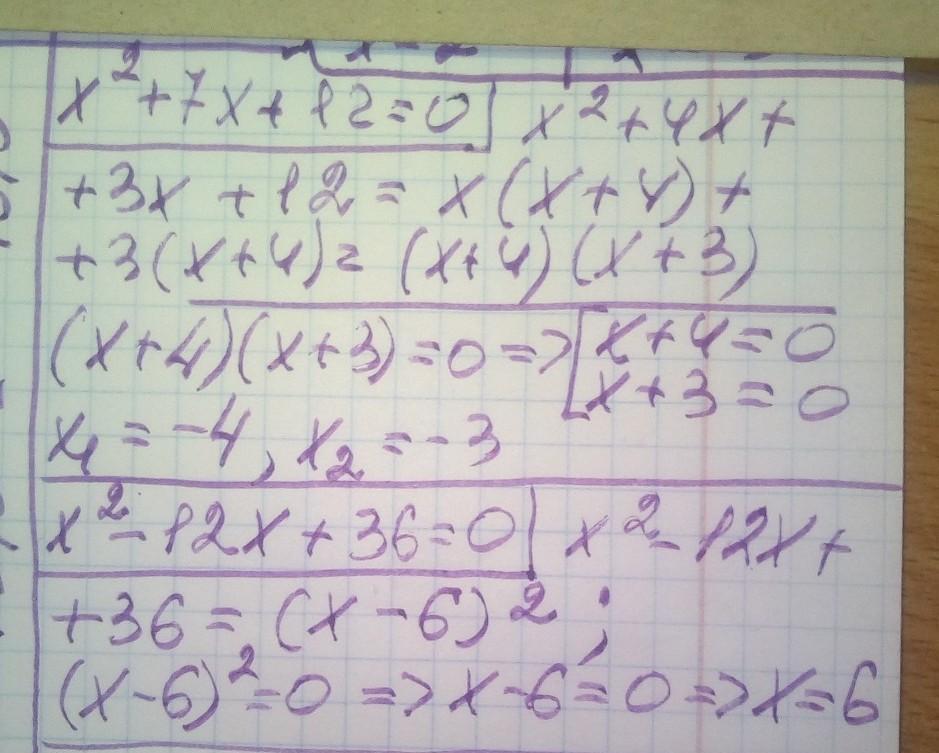 x²+7x+12=0 x²+4x+
+3x+12= x(x+4)+
+3(x+4)= (x+4)(x+3)
(x+4)(x+3)=0 => [x+4=0
x+3=0
x₁=-4, x₂=-3
x²-12x+36=0 x²-12x+
+36=(x-6)²;
(x-6)²=0 => x-6=0 => x=6